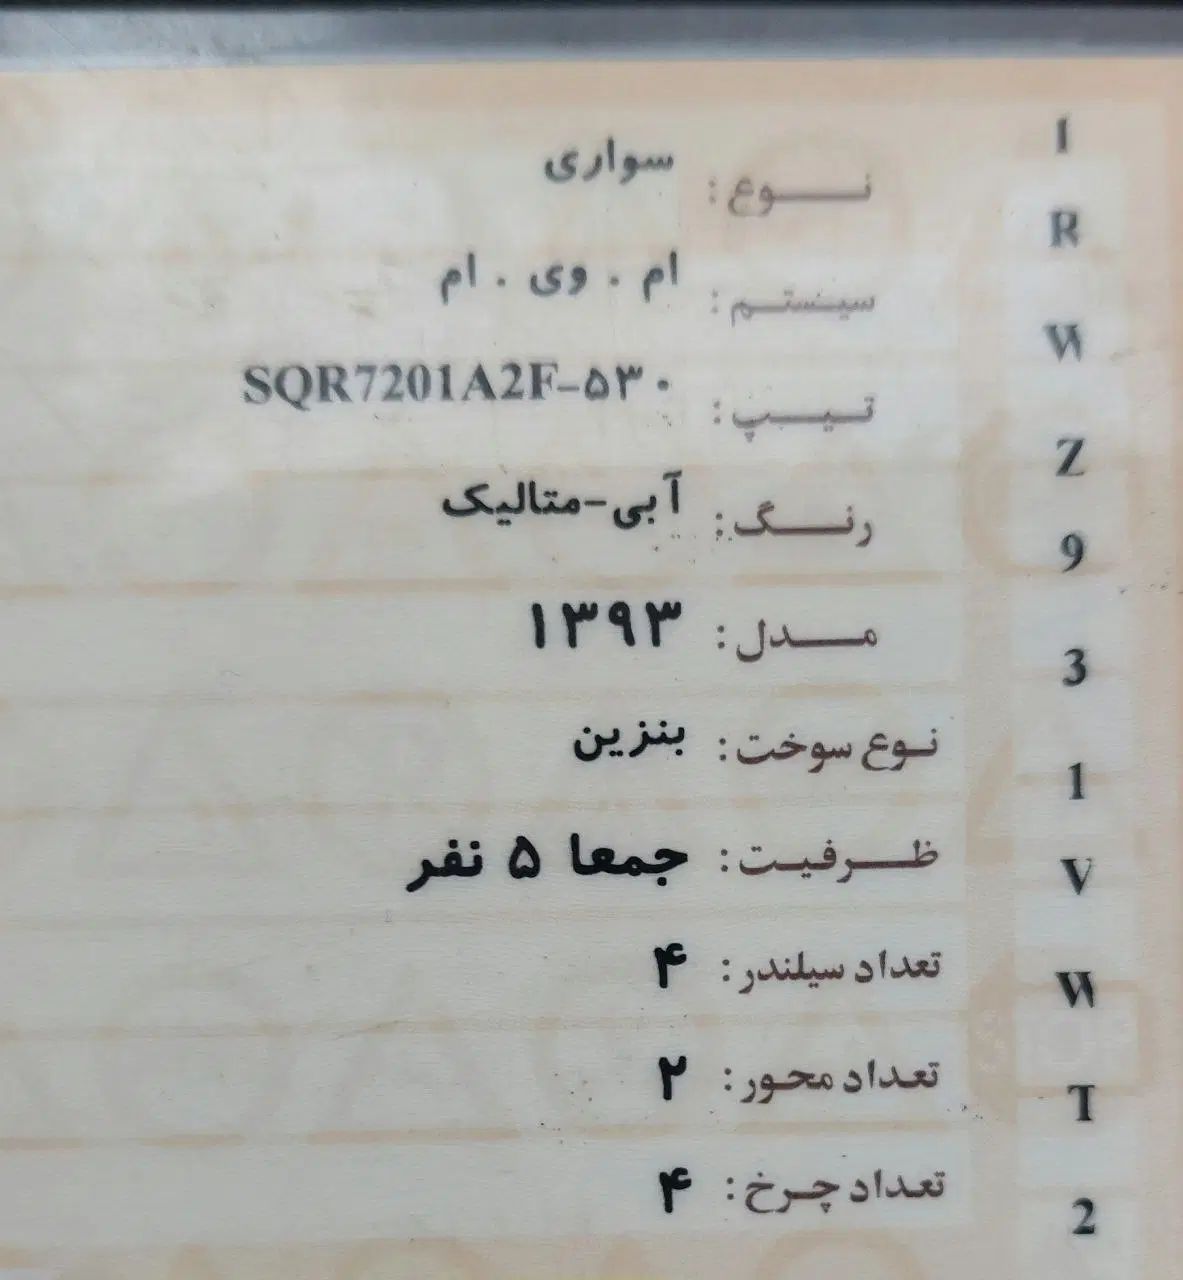 نوع: سواری
سیستم: ام . وی . ام
تیپ: SQR7201A2F-۵۳۰
رنگ: آبی-متالیک
مدل: ۱۳۹۳
نوع سوخت: بنزین
ظرفیت: جمعا ۵ نفر
تعداد سیلندر: ۴
تعداد محور: ۲
تعداد چرخ: ۴
I
R
W
Z
9
3
1
V
W
T
2